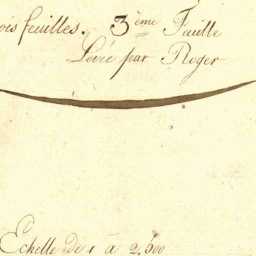 ois feuilles. 3ème Feuille
Levée par Roger
Echelle de 1 à 2,500